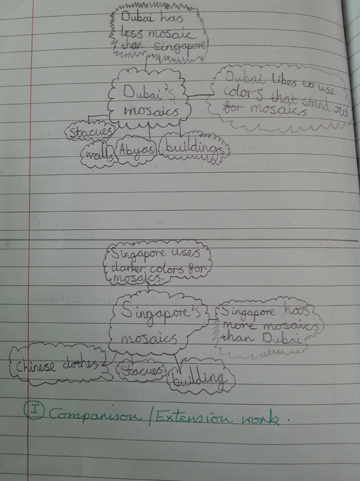 Dubai has
less mosaic
than Singapore
Dubai's
mosaics
Dubai likes to use
colors that stand out
for mosaics
Stacues
walls
Abyas
buildings
Singapore uses
darker colors for
mosaics.
Singapore's
mosaics
Singapore has
more mosaics
than Dubai
Chinese clothes
Stacues
building
I Comparison/Extension work.